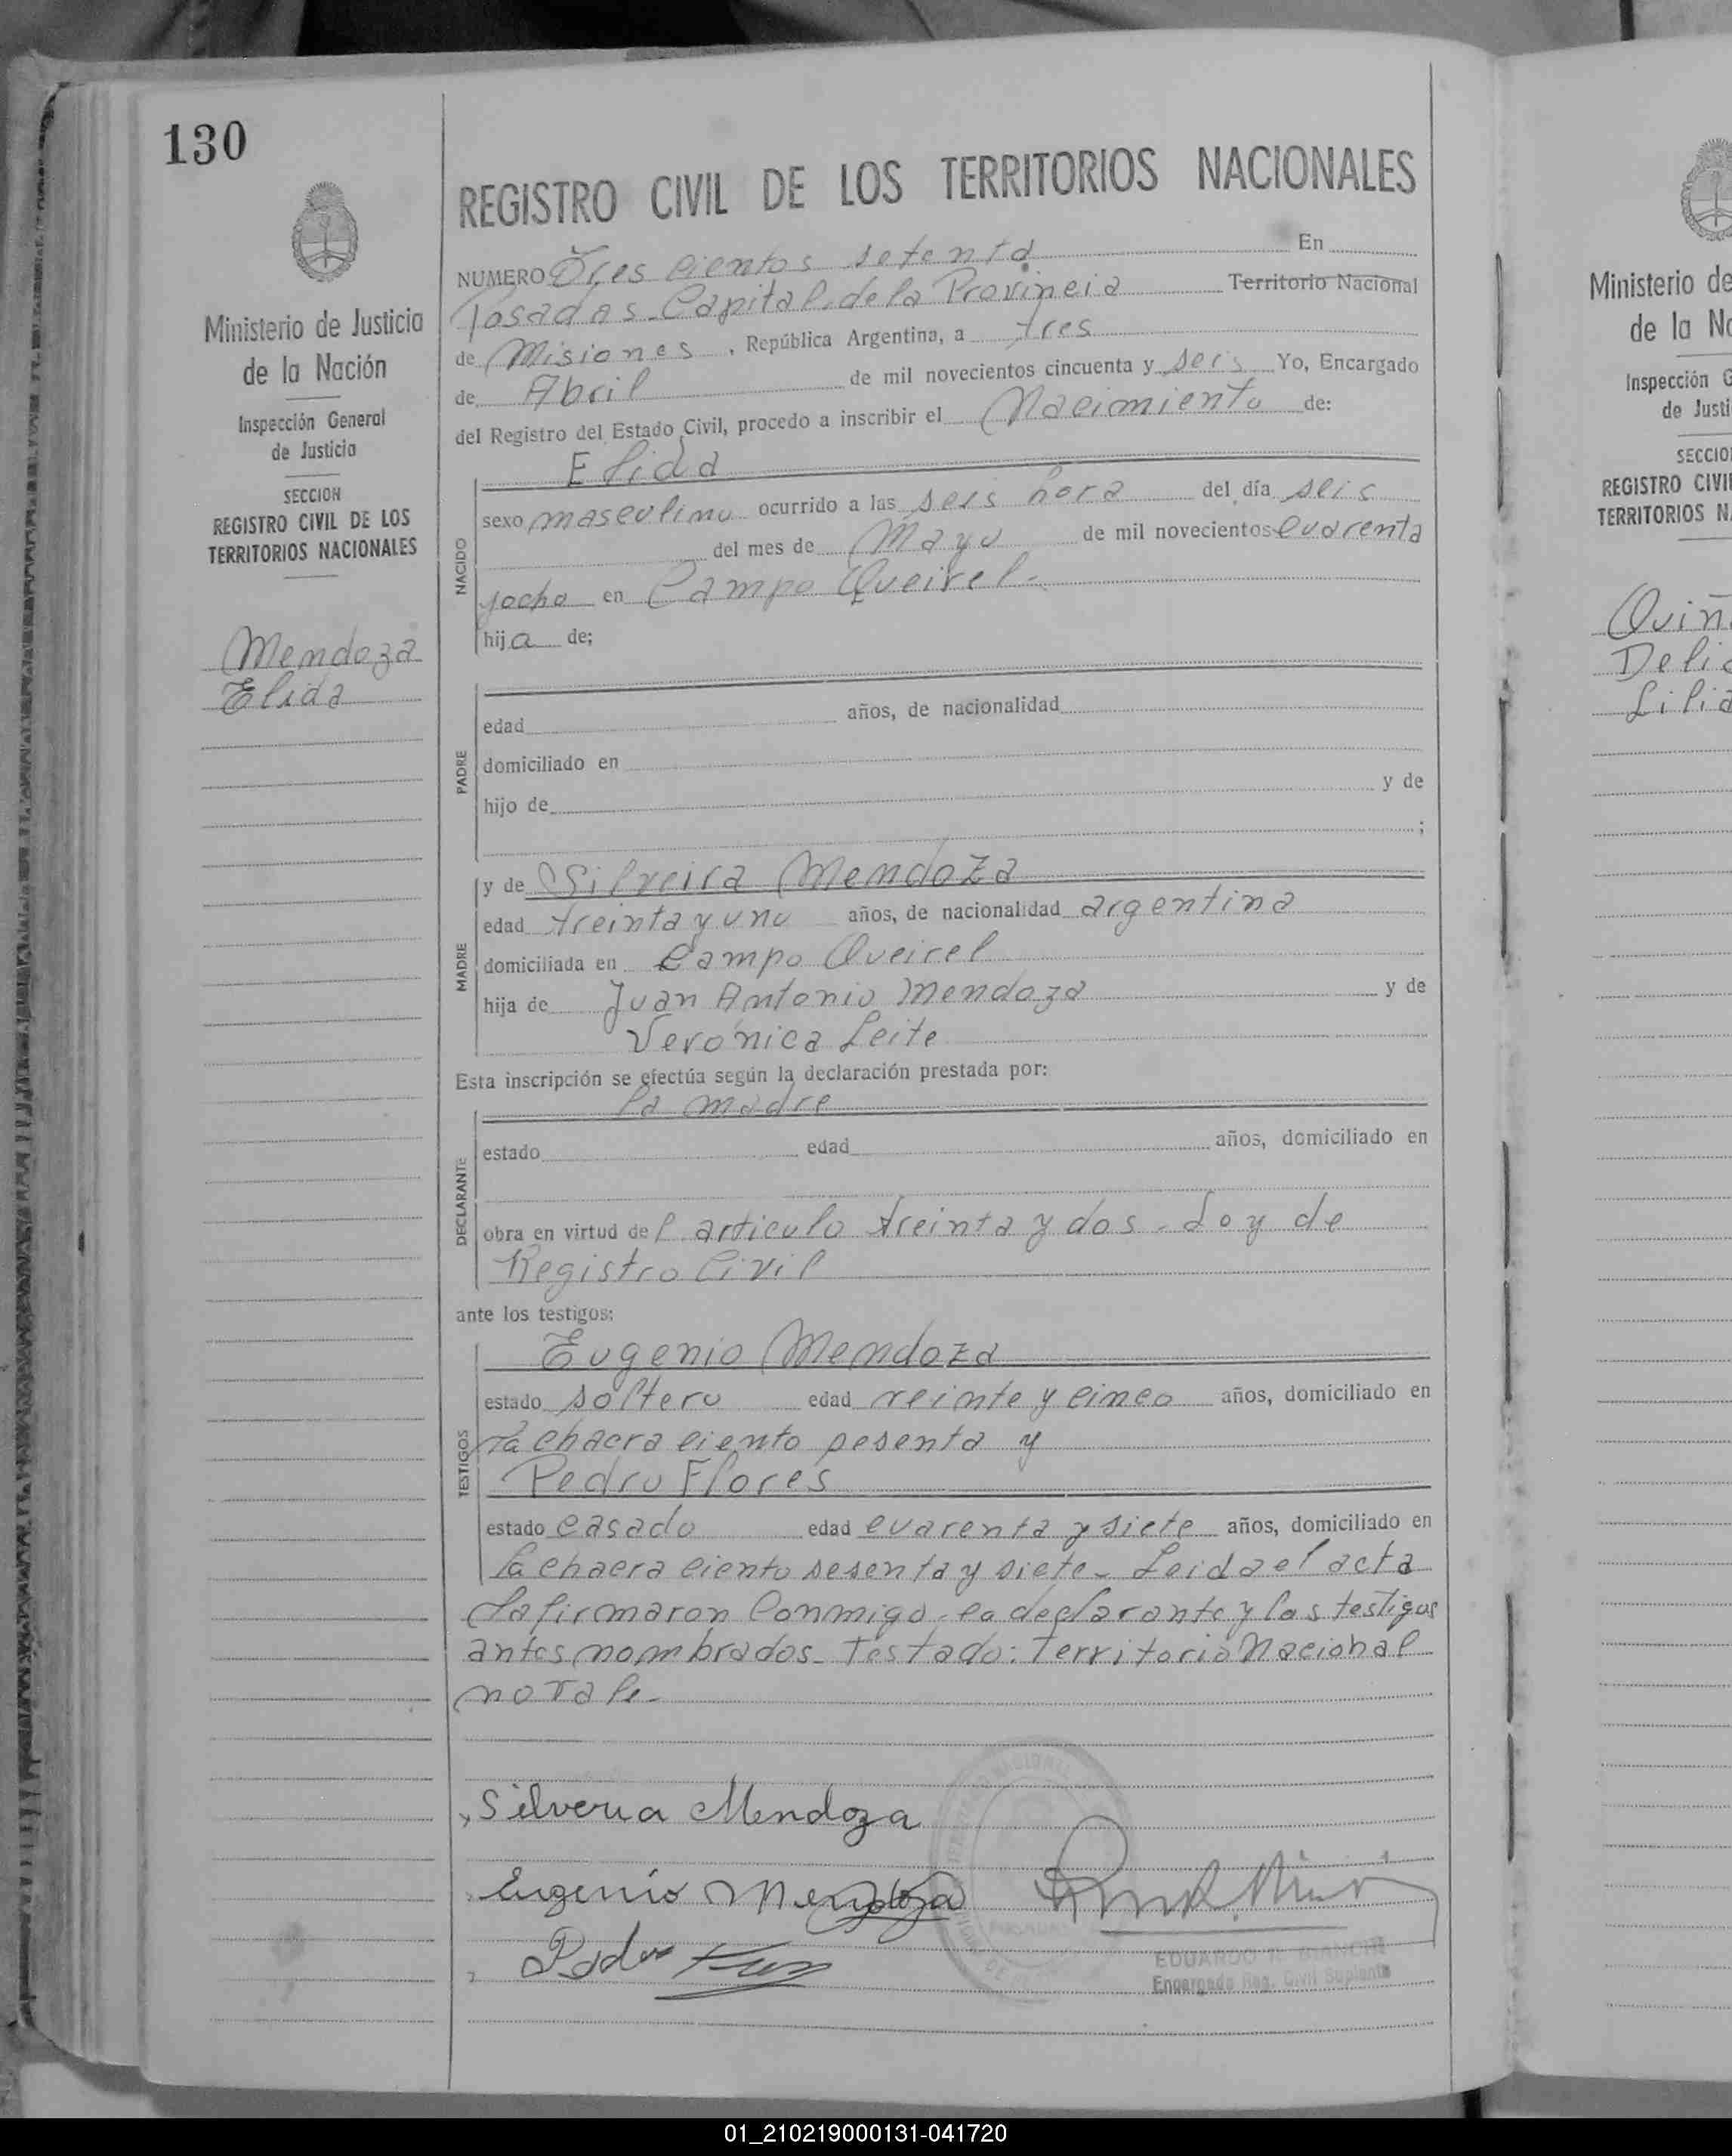 130
REGISTRO CIVIL DE LOS TERRITORIOS NACIONALES
Ministerio de Justicia
de la Nación
Inspección General
de Justicia
SECCION
REGISTRO CIVIL DE LOS
TERRITORIOS NACIONALES
Mendoza
Elida
NUMERO Tres cientos setenta En
Posadas - Capital de la Provincia Territorio Nacional
de Misiones, República Argentina, a tres
de Abril de mil novecientos cincuenta y seis Yo, Encargado
del Registro del Estado Civil, procedo a inscribir el Nacimiento de:
Elida
NACIDO
sexo masculino ocurrido a las seis hora del día seis
del mes de Mayo de mil novecientos cuarenta
yocho en Campo Queirel.
hija de;
PADRE
edad años, de nacionalidad
domiciliado en
hijo de y de
;
MADRE
y de Silveira Mendoza
edad treinta y uno años, de nacionalidad argentina
domiciliada en Campo Queirel
hija de Juan Antonio Mendoza y de
Verónica Leite
Esta inscripción se efectúa según la declaración prestada por:
la madre
DECLARANTE
estado edad años, domiciliado en
obra en virtud del articulo treinta y dos - Ley de
Registro Civil
ante los testigos:
TESTIGOS
Eugenio Mendoza
estado soltero edad veinte y cinco años, domiciliado en
la chacra ciento sesenta y
Pedro Flores
estado casado edad cuarenta y siete años, domiciliado en
la chacra ciento sesenta y siete - Leida el acta
la firmaron Conmigo, la declarante y los testigos
antes nombrados - Testado: Territorio Nacional
no vale.
Silveria Mendoza
Eugenio Mendoza
Pedro
EDUARDO R. BIANCHI
Encargado Reg. Civil Suplente
Ministerio de
de la Na
Inspección G
de Justi
SECCIO
REGISTRO CIVI
TERRITORIOS N
Quiñ
Deli
Lili
01_210219000131-041720